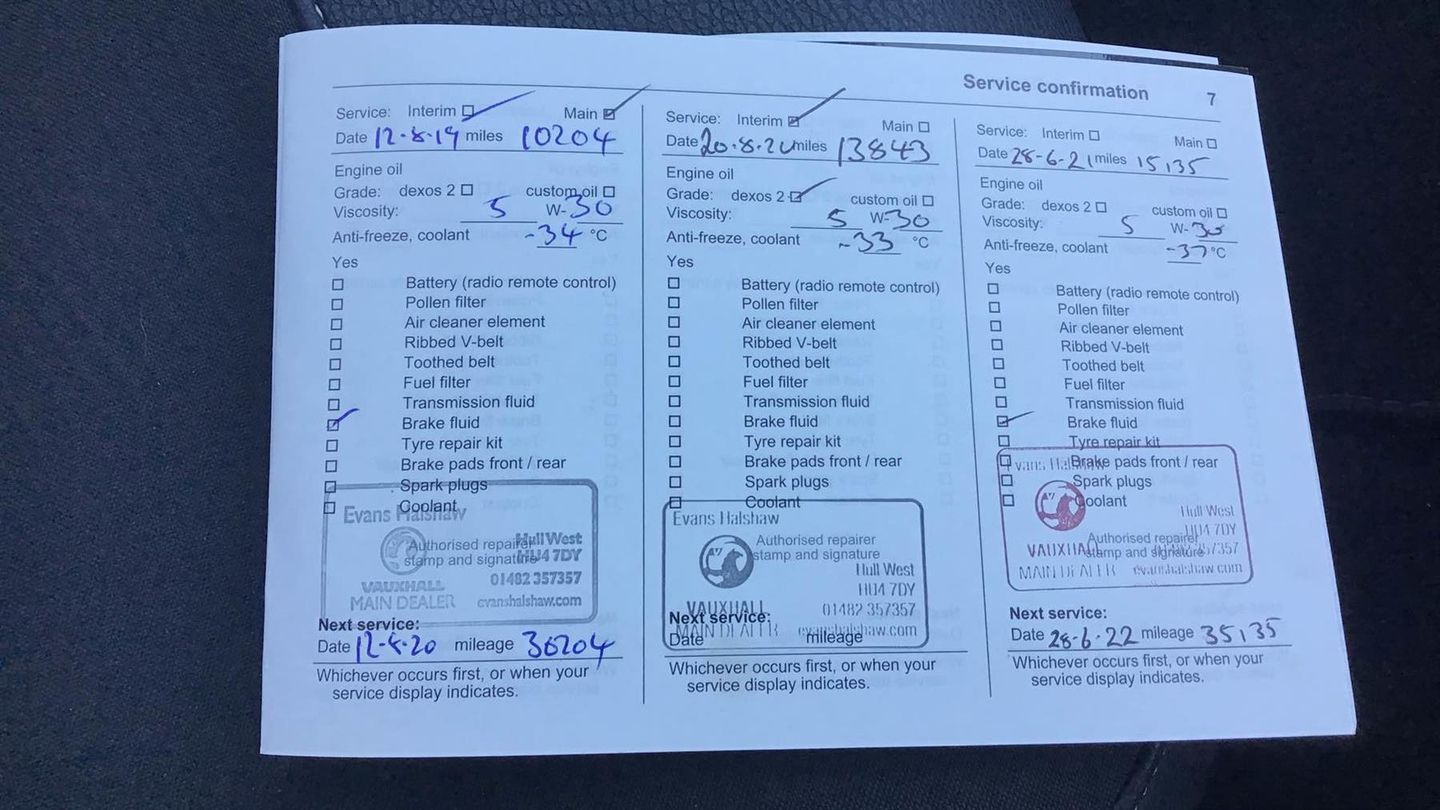 Service confirmation 7
Service: Interim ☐ Main ☑
Date 12-8-19 miles 10204
Engine oil
Grade: dexos 2 ☐ custom oil ☐
Viscosity: 5 W-30
Anti-freeze, coolant -34 °C
Yes
☐ Battery (radio remote control)
☐ Pollen filter
☐ Air cleaner element
☐ Ribbed V-belt
☐ Toothed belt
☐ Fuel filter
☐ Transmission fluid
☑ Brake fluid
☐ Tyre repair kit
☐ Brake pads front / rear
☐ Spark plugs
☐ Coolant
Evans Halshaw
Authorised repairer
stamp and signature
Hull West
HU4 7DY
VAUXHALL 01482 357357
MAIN DEALER evanshalshaw.com
Next service:
Date 12-8-20 mileage 30204
Whichever occurs first, or when your
service display indicates.
Service: Interim ☑ Main ☐
Date 20-8-20 miles 13843
Engine oil
Grade: dexos 2 ☑ custom oil ☐
Viscosity: 5 W-30
Anti-freeze, coolant -33 °C
Yes
☐ Battery (radio remote control)
☐ Pollen filter
☐ Air cleaner element
☐ Ribbed V-belt
☐ Toothed belt
☐ Fuel filter
☐ Transmission fluid
☐ Brake fluid
☐ Tyre repair kit
☐ Brake pads front / rear
☐ Spark plugs
☐ Coolant
Evans Halshaw
Authorised repairer
stamp and signature
Hull West
HU4 7DY
VAUXHALL 01482 357357
MAIN DEALER evanshalshaw.com
Next service:
Date mileage
Whichever occurs first, or when your
service display indicates.
Service: Interim ☐ Main ☐
Date 28-6-21 miles 15135
Engine oil
Grade: dexos 2 ☐ custom oil ☐
Viscosity: 5 W-30
Anti-freeze, coolant -37 °C
Yes
☐ Battery (radio remote control)
☐ Pollen filter
☐ Air cleaner element
☐ Ribbed V-belt
☐ Toothed belt
☐ Fuel filter
☐ Transmission fluid
☑ Brake fluid
☐ Tyre repair kit
☐ Brake pads front / rear
☐ Spark plugs
☐ Coolant
Evans Halshaw
Hull West
HU4 7DY
Authorised repairer
stamp and signature
VAUXHALL 357357
MAIN DEALER evanshalshaw.com
Next service:
Date 28-6-22 mileage 35135
Whichever occurs first, or when your
service display indicates.